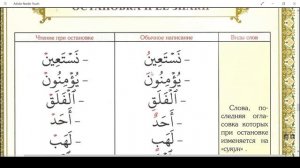 Adobe Reader Touch
ОСТАНОВКА И ЕЁ ЗНАКИ
Чтение при остановке Обычное написание Виды слов
– نَسْتَعِينْ – نَسْتَعِينُ
– يُؤْمِنُونْ – يُؤْمِنُونَ
– الْفَلَقْ – الْفَلَقِ
– أَحَدْ – أَحَدٌ
– لَهَبْ – لَهَبٍ
Слова, по-
следняя огла-
совка которых
при остановке
изменяется на
«сукун» .